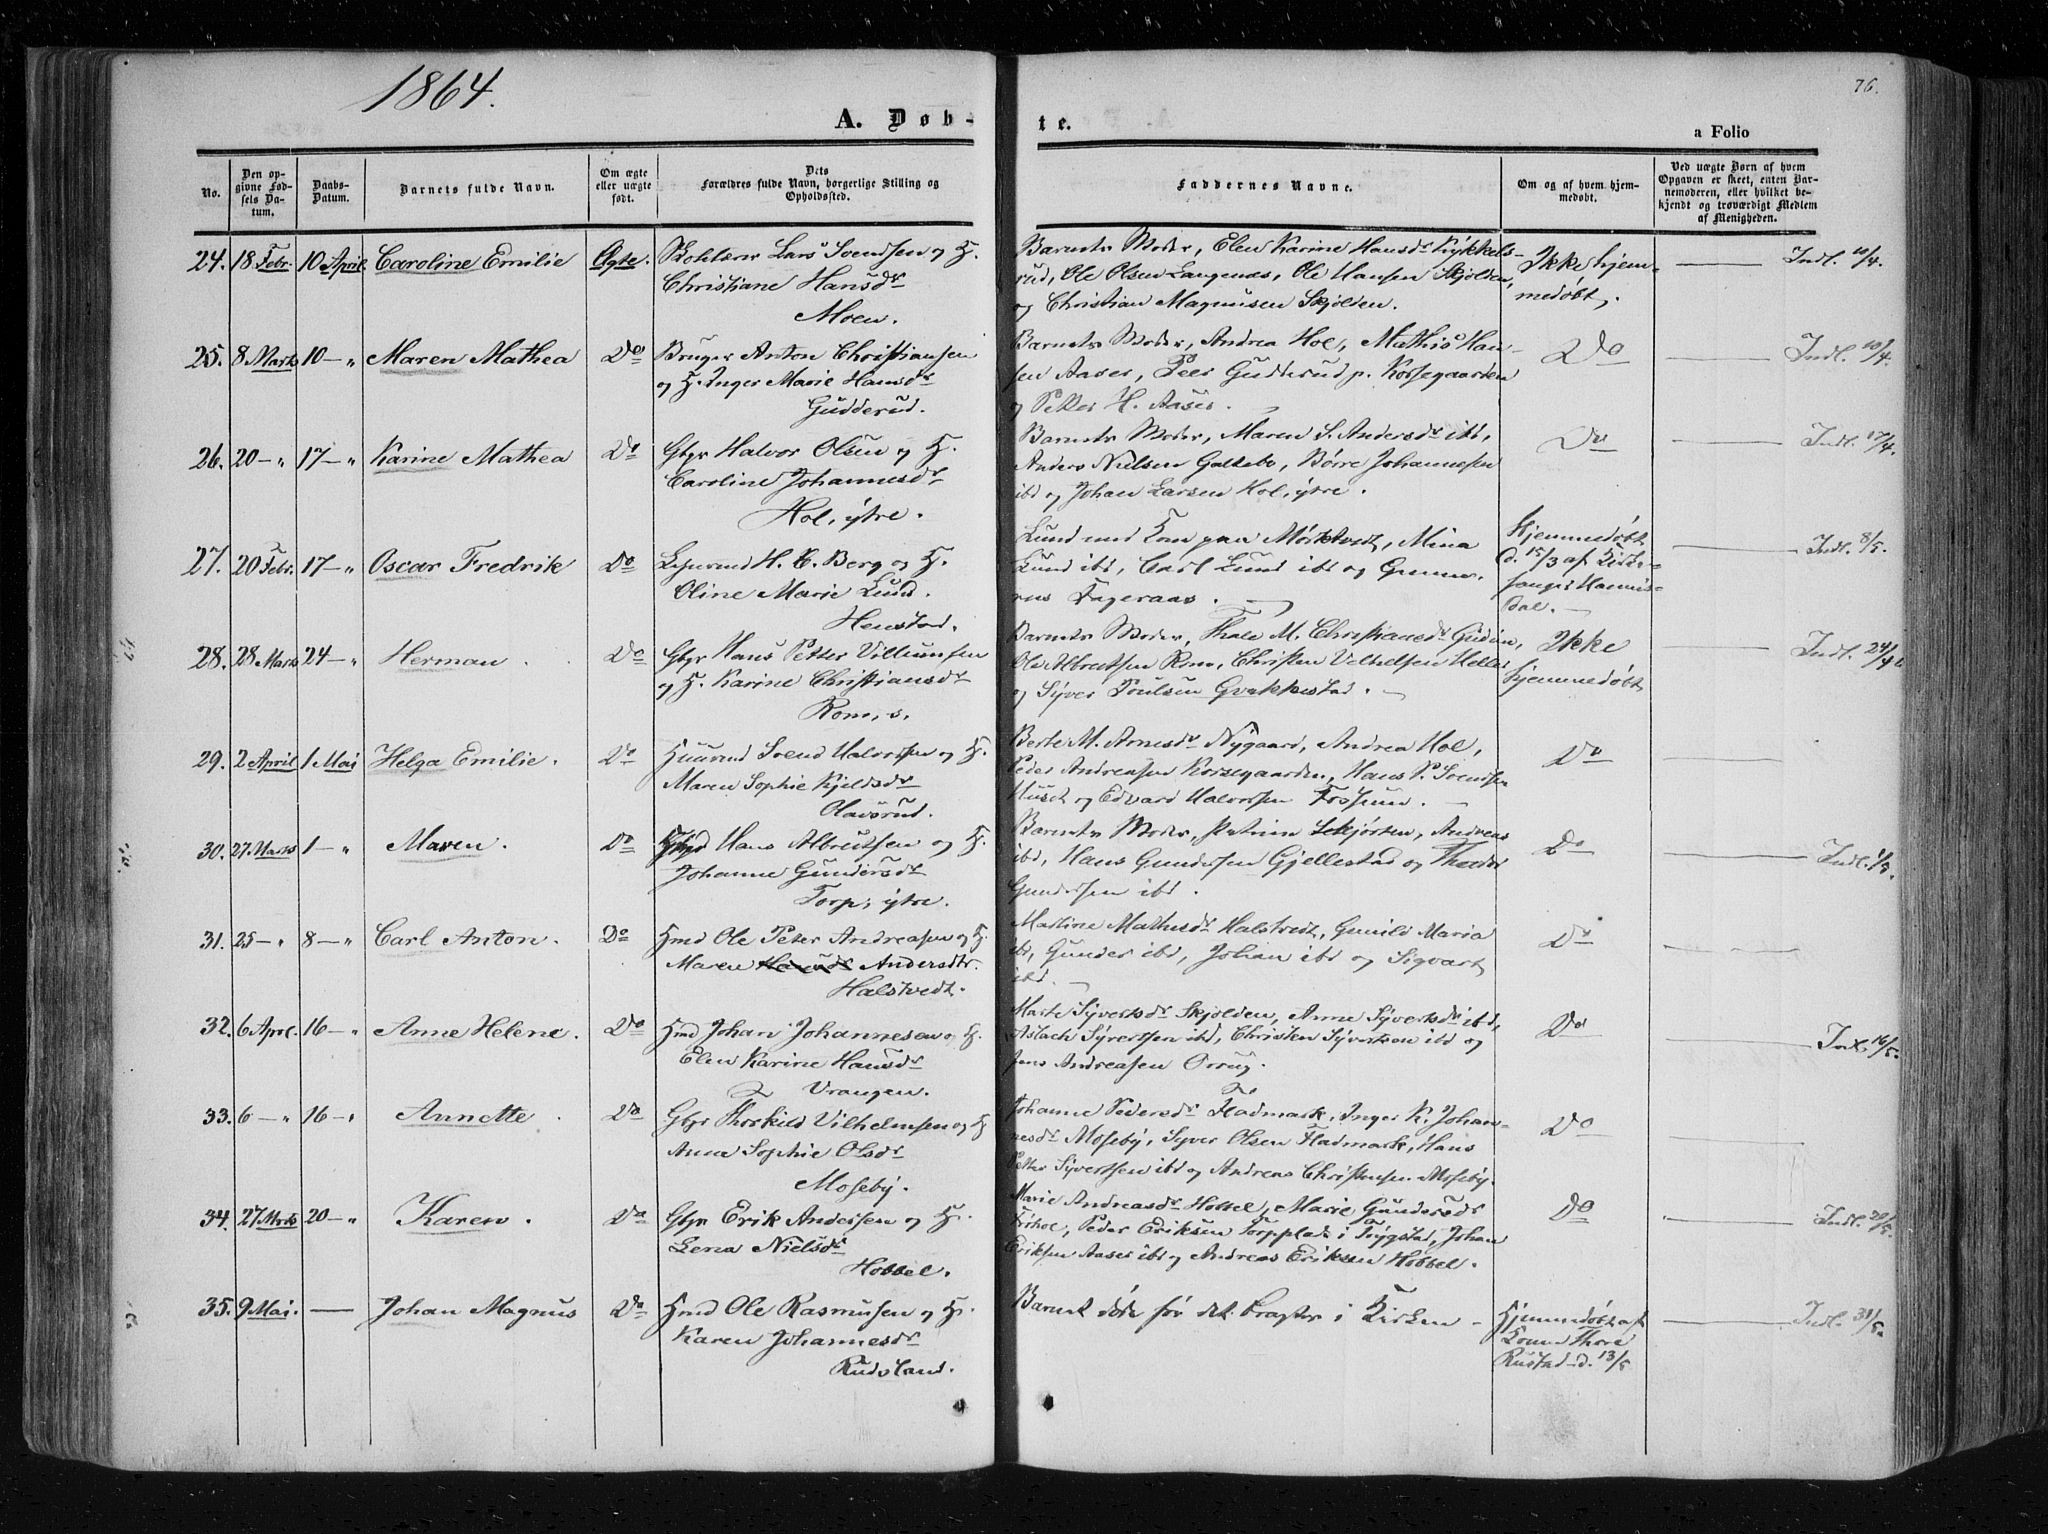 1864.
76.
A. Døb-
te.
a Folio
No.
Den opgivne Fødsels Datum.
Daabs-Datum.
Barnets fulde Navn.
Om ægte eller uægte født.
Dets Forældres fulde Navn, borgerlige Stilling og Opholdssted.
Faddernes Navne.
Om og af hvem hjemmedøbt.
Ved uægte Børn af hvem Opgaven er skeet, enten Barnemoderen, eller hvilket bekjendt og troværdigt Medlem af Menigheden.
24. 18 Febr. 10 April Caroline Emilie Ægte. Lars Svendsen og H.
Christiane Hansdr
Moen.
Barnets Moder, Elen Karine Hansdr Kykkels-
rud, Ole Olsen Langenæs, Ole Hansen Skjolden,
og Christian Magnusen Skjolden.
Ikke hjem-
medøbt.
Indl. 10/4.
25. 8 Marts 10 — " Maren Mathea Do Bruger Anton Christiansen
og H. Inger Marie Hansdr
Gudderud.
Barnets Moder, Andrea Hol, Mathis Han-
sen Aaser, Peer Gudderud p. Korsegaarden
og Petter H. Aaser.
Do
Indl. 10/4.
26. 20 — " 17 — " Karine Mathea Do Gbgr Halvor Olsen og H.
Caroline Johannesdr
Hol, ytre.
Barnets Moder, Maren S. Andersdr ibd,
Anders Nielsen Galtebo, Børre Johannesen
ibd og Johan Larsen Hol, ytre.
Do
Indl. 17/4.
27. 20 Febr. 17 — " Oscar Fredrik Do H. C. Berg og H.
Oline Marie Lund.
Henstad.
Lund med Kone paa Mørktvedt, Mina
Lund ibd, Carl Lund ibd og Gunne-
rius Fageraas.
Hjemmedøbt
d. 15/3 af Kirke-
sanger Hannis-
dal.
Indl. 8/5.
28. 28 Marts 24 — " Herman. Do Gbgr Hans Petter Villumsen
og H. Karine Christiansdr
Rom, s.
Barnets Moder, Thale M. Christiansdr Gudim,
Ole Albretsen Rom, Christen Helle
og Syver Poulsen Gvakkestad.
Ikke
hjemmedøbt
Indl. 24/4
29. 2 April 1 Mai Helga Emilie. Do Huusmd Svend Halvorsen og H.
Maren Sophie Kjeldsdr
Olavsrud.
Berte M. Arnesdr Nygaard, Andrea Hol,
Peder Andreasen Korsegaarden, Hans P. Svendsen
Huset og Edvard Halvorsen Fossum.
Do
30. 27 Marts 1 — " Maren. Do Hans Albretsen og H.
Johanne Gundersdr
Torp, ytre.
Barnets Moder, Andreas
ibd, Hans Gundersen Gjellestad og
Gundersen ibd.
Do
Indl. 1/5.
31. 25 — " 8 — " Carl Anton. Do Hmd Ole Peter Andreasen og H.
Maren Hansdr Andersdtr.
Halstvedt.
Martine Mathisdr Halstvedt, Gunild Maria
ibd, Gunder ibd, Johan ibd og Sigvart
ibd.
Do
32. 6 April. 16 — " Anne Helene. Do Hmd Johan Johannesen og H.
Elen Karine Hansdr
Vrangen.
Marte Syvertsdr Skjolden, Anne Syvertsdr ibd,
Aslach Syvertsen ibd, Christen Syvertsen ibd og
Jens Andreasen Orrug.
Do
Indl. 16/5.
33. 6 — " 16 — " Annette. Do Gbgr Thorkild Vilhelmsen og H
Anna Sophie Olsdr
Moseby.
Johanne Pedersdr Fladmark, Inger K. Johan-
nesdr Moseby, Syver Olsen Fladmark, Hans
Petter Syvertsen ibd og Andreas Christensen Moseby.
Do
34. 27 Marts 20 — " Karen. Do Gbgr Erik Andersen og H.
Lena Nielsdr
Hobbel.
Marie Andreasdr Hobbel, Marie Gundersdr
Peder Eriksen Torpplads i Trygstad, Johan
Eriksen Aaser ibd og Andreas Eriksen Hobbel.
Do
Indl. 20/5.
35. 9 Mai. — Johan Magnus Do Hmd Ole Rasmusen og H.
Karen Johannesdr
Rudsland.
Barnet døde før det bragtes i Kirken —
Hjemmedøbt af
Konen Thore
Rustad d. 13/5
Indl. 31/5.